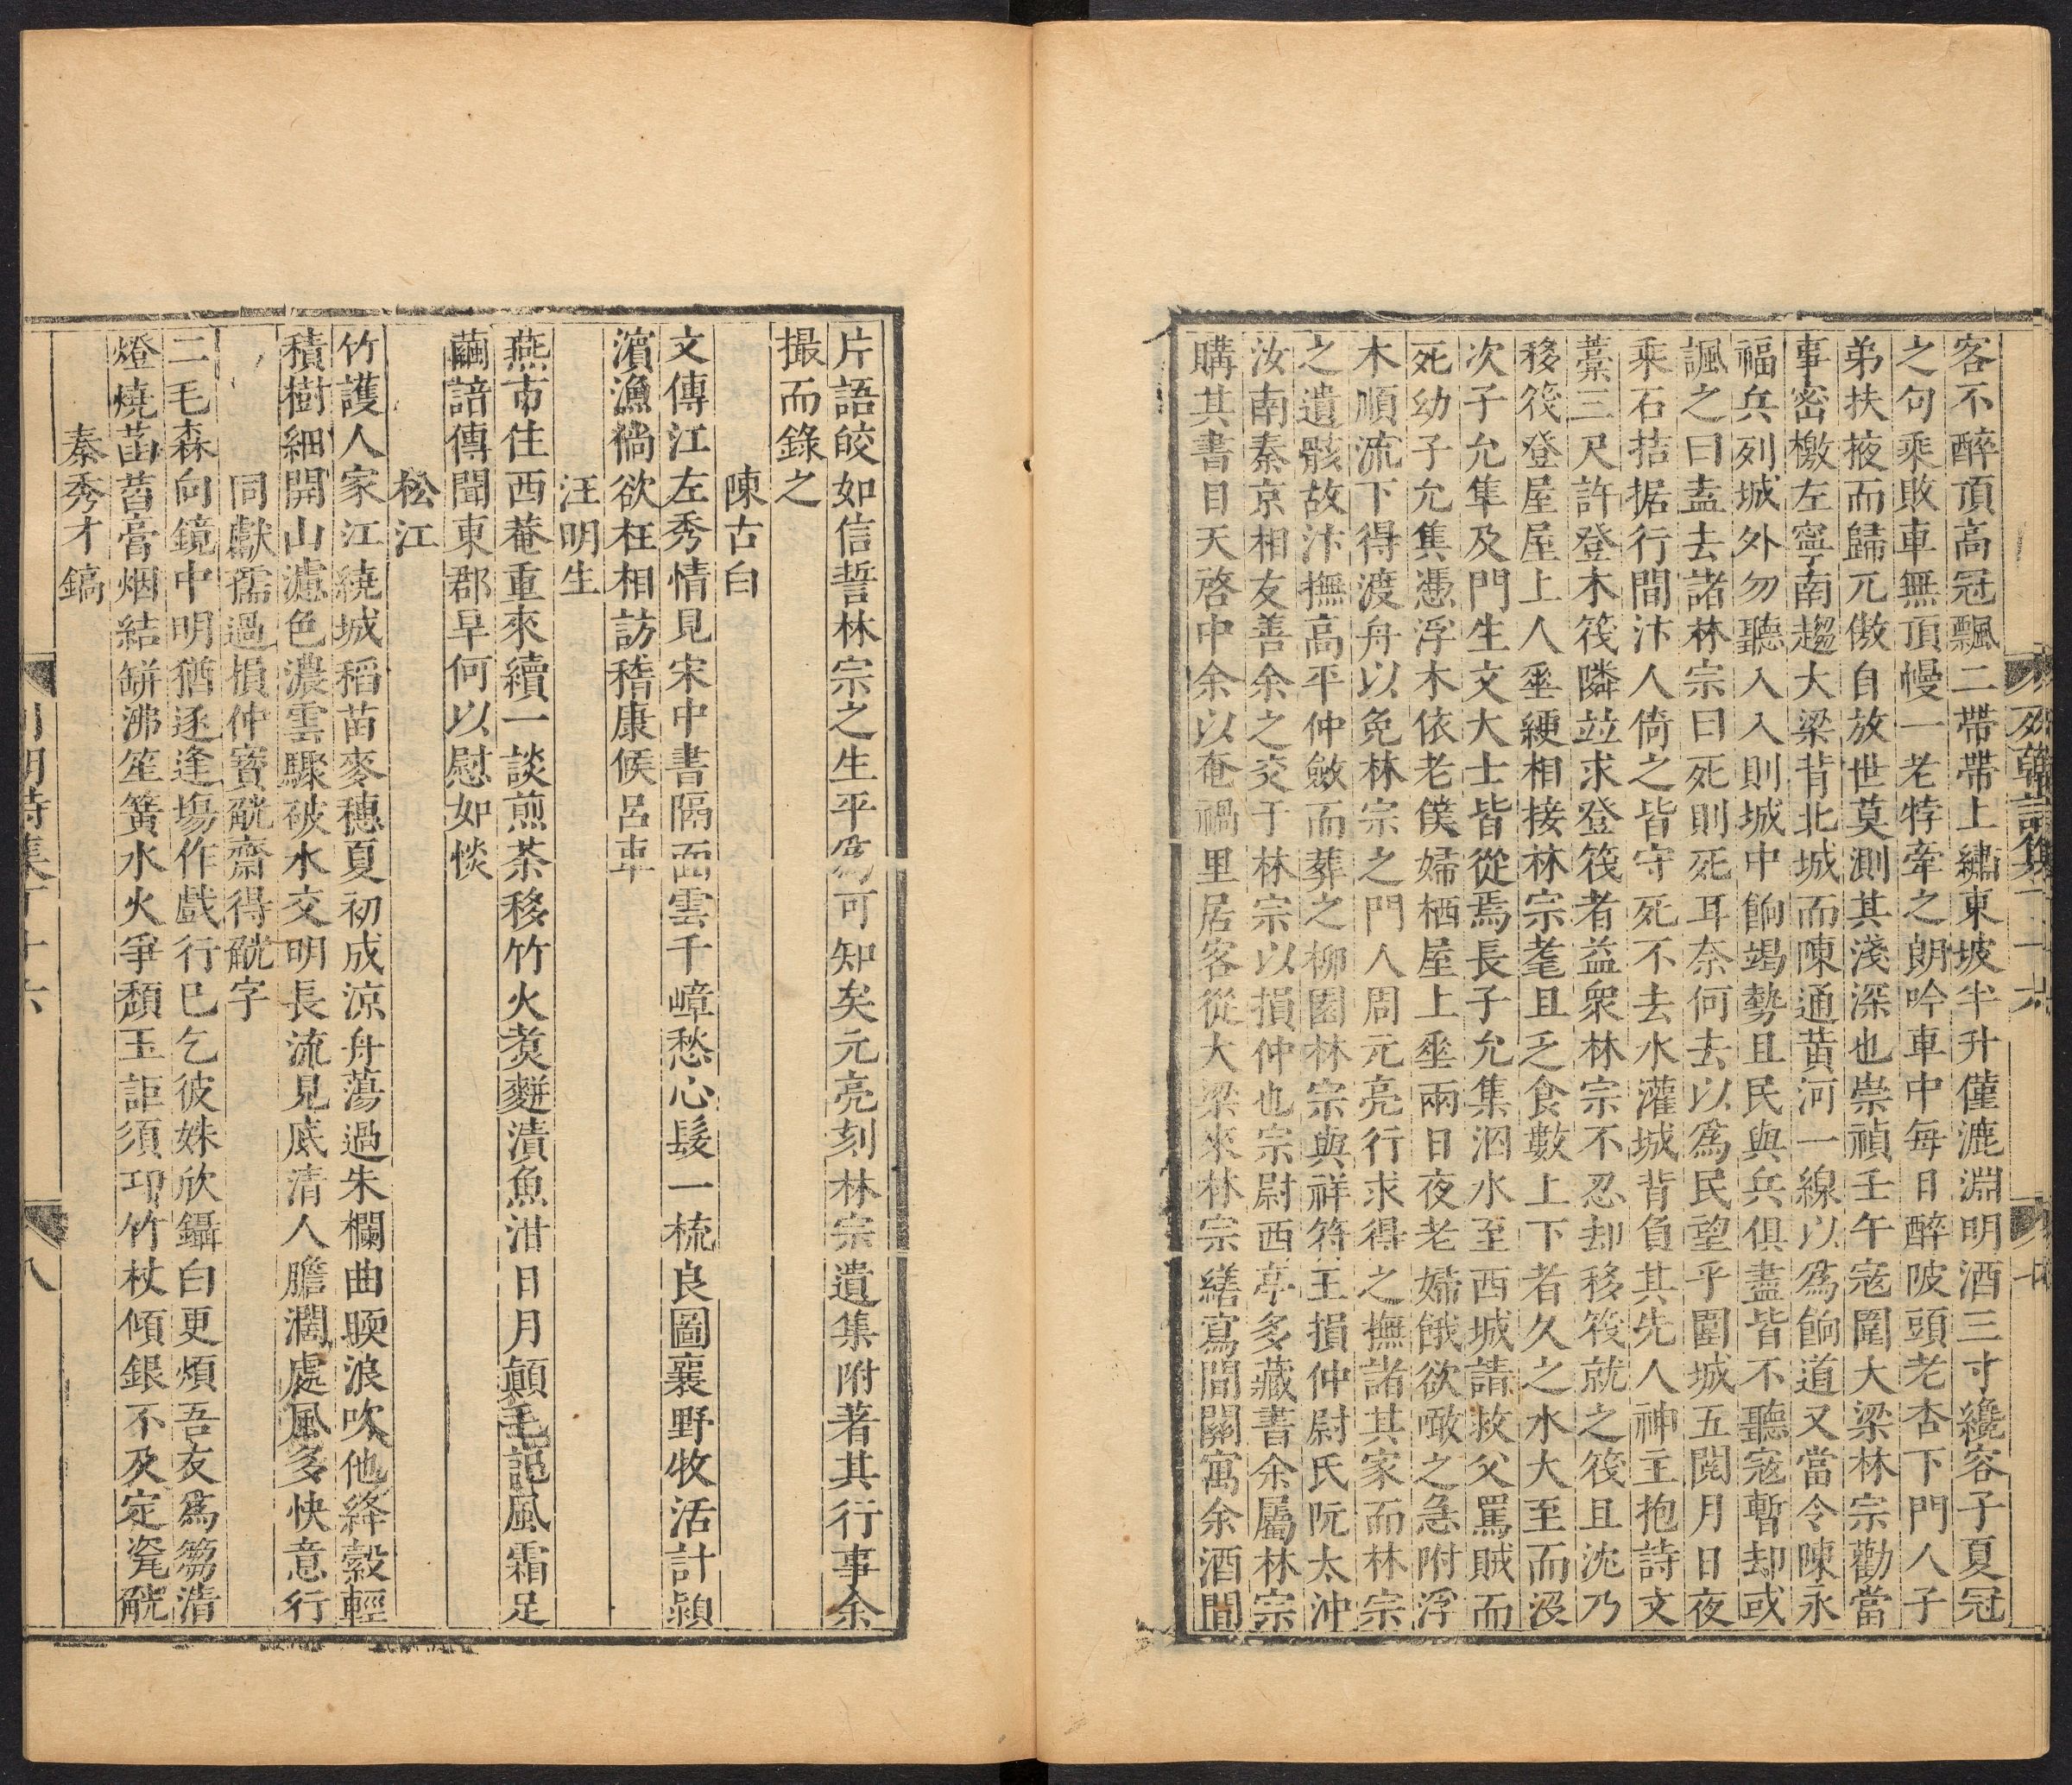 客不醉頂高冠飄二帶帶上繡東坡半升僅漉淵明酒三寸纔容子夏冠
之句乘敗車無頂幔一老牸牽之朗吟車中每日醉陂頭老杏下門人子
弟扶掖而歸元傲自放世莫測其淺深也崇禎壬午寇圍大梁林宗勸當
事密檄左寧南趨大梁背北城而陳通黃河一線以為餉道又當令陳永
福兵列城外勿聽入入則城中餉竭勢且民與兵俱盡皆不聽寇暫却或
諷之曰盍去諸林宗曰死則死耳奈何去以為民望乎圍城五閱月日夜
乘石拮据行間汴人倚之皆守死不去水灌城背負其先人神主抱詩文
藁三尺許登木筏隣並求登筏者益衆林宗不忍却移筏就之筏且沈乃
移筏登屋屋上人垂綆相接林宗耄且乏食數上下者久之水大至而沒
次子允隼及門生文大士皆從焉長子允集泅水至西城請救父罵賊而
死幼子允集憑浮木依老僕婦栖屋上垂兩日夜老婦餓欲噉之急附浮
木順流下得渡舟以免林宗之門人周元亮行求得之撫諸其家而林宗
之遺骸故汴撫高平仲斂而葬之柳園林宗與祥符王損仲尉氏阮太沖
汝南秦京相友善余之交于林宗以損仲也宗尉西亭多藏書余屬林宗
購其書目天啓中余以奄禍里居客從大梁來林宗繕寫間關寓余酒間
片語皎如信誓林宗之生平為可知矣元亮刻林宗遺集附著其行事余
撮而錄之
陳古白
文傳江左秀情見宋中書隔面雲千嶂愁心髮一梳良圖襄野牧活計潁
濱漁徜欲枉相訪嵇康候呂車
汪明生
燕市住西菴重來續一談煎茶移竹火煑麪漬魚泔日月顛毛記風霜足
繭諳傳聞東郡旱何以慰如惔
松江
竹護人家江繞城稻苗麥穗夏初成涼舟蕩過朱欄曲暎浪吹他絳縠輕
積樹細開山濾色濃雲驟破水交明長流見底清人膽濶處風多快意行
同獻孺過損仲寶觥齋得觥字
二毛森向鏡中明猶逐逢塲作戲行巳乞彼姝欣鑷白更煩吾友為篘清
燈燒菡萏膏烟結缾沸笙簧水火爭頹玉詎須邛竹杖傾銀不及定瓷觥
秦秀才鎬